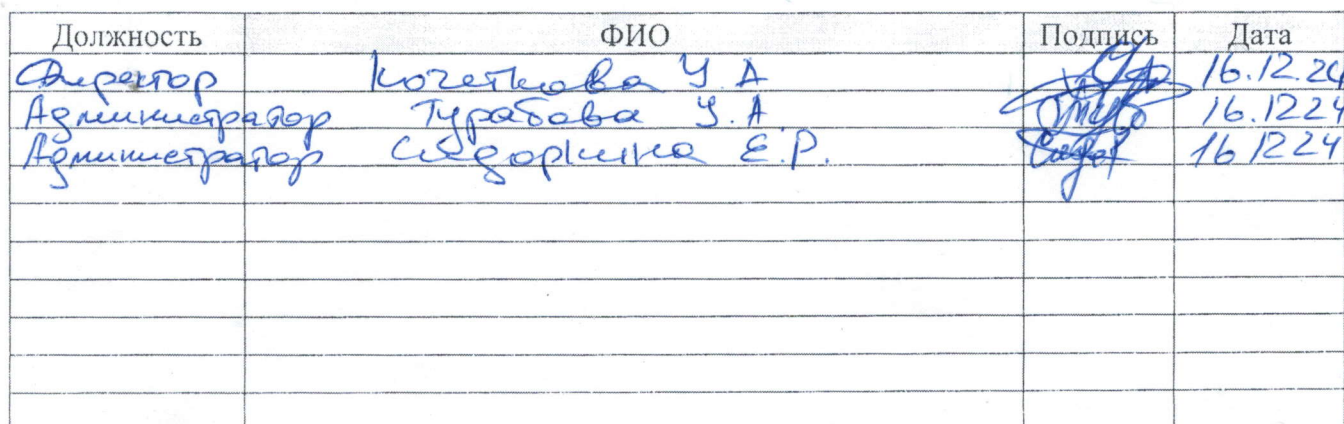 Должность ФИО Подпись Дата
Директор Кочеткова У.А 16.12.24
Администратор Турабова У.А 16.1224
Администратор Сидоркина Е.Р. 16 1224